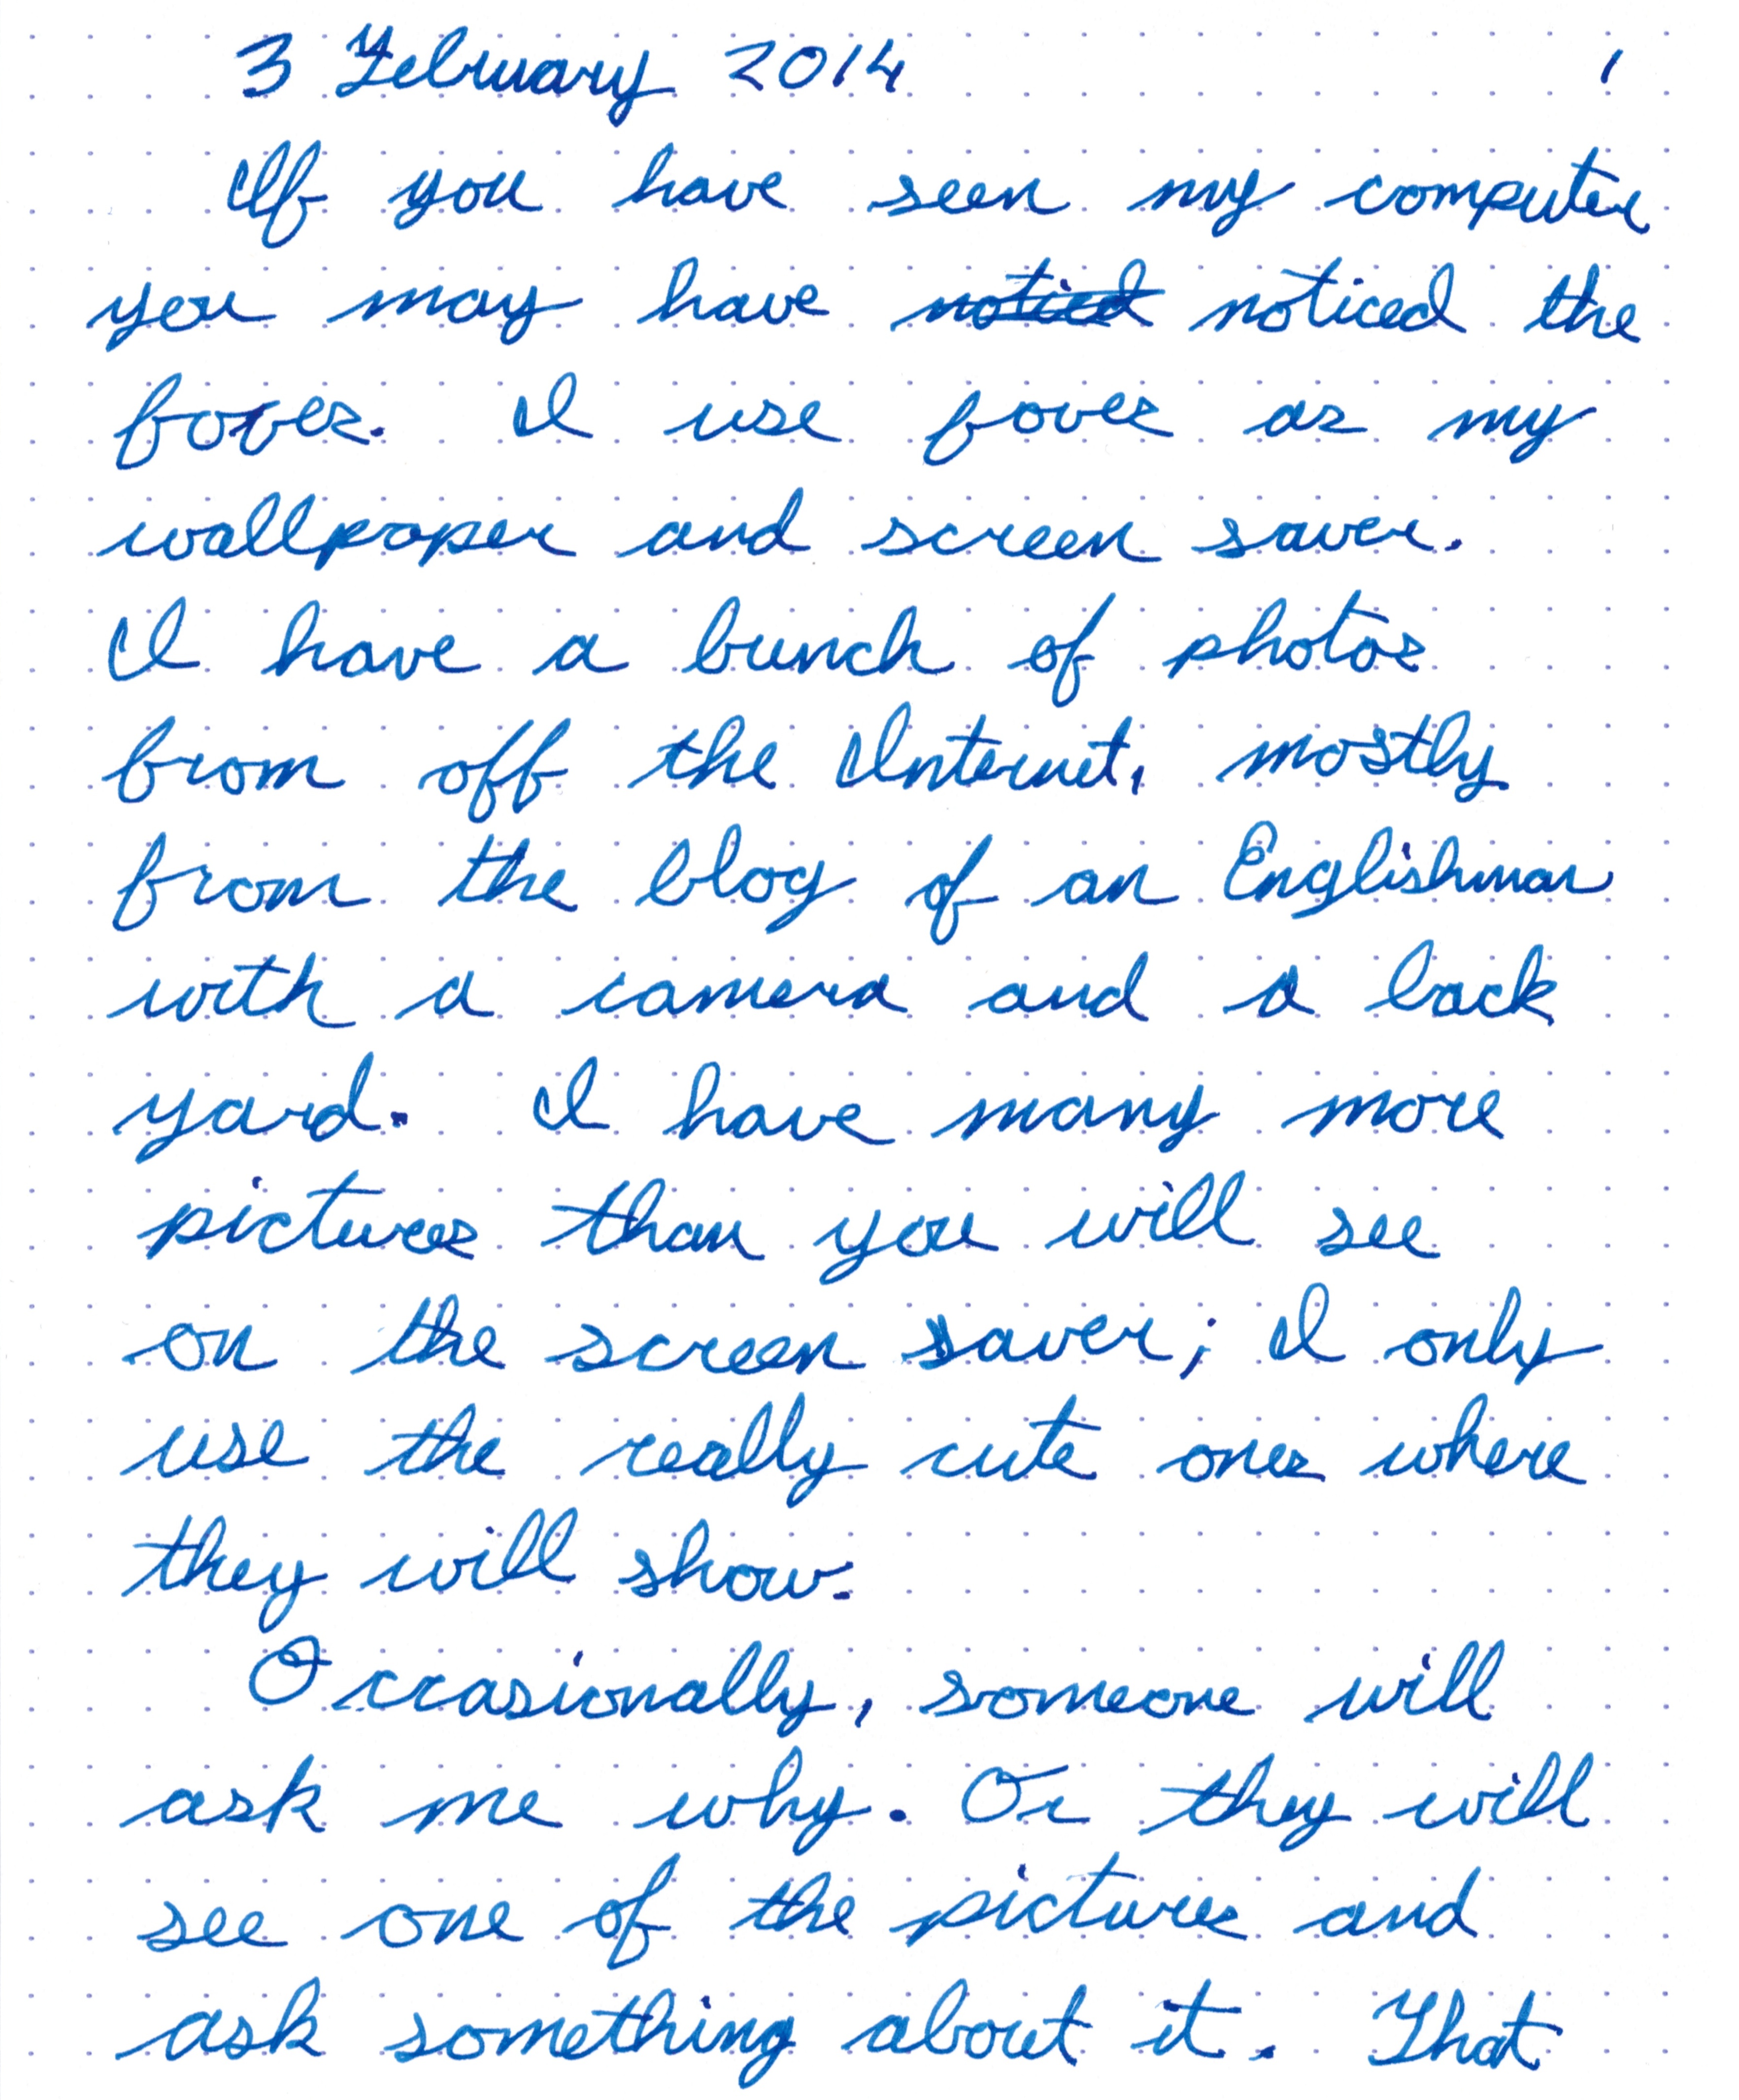 3 February 2014 1
If you have seen my computer
you may have noticed the
foxes. I use foxes as my
wallpaper and screen saver.
I have a bunch of photos
from off the Internet, mostly
from the blog of an Englishman
with a camera and a back
yard. I have many more
pictures than you will see
on the screen saver; I only
use the really cute ones where
they will show.
Occasionally, someone will
ask me why. Or they will
see one of the pictures and
ask something about it. That